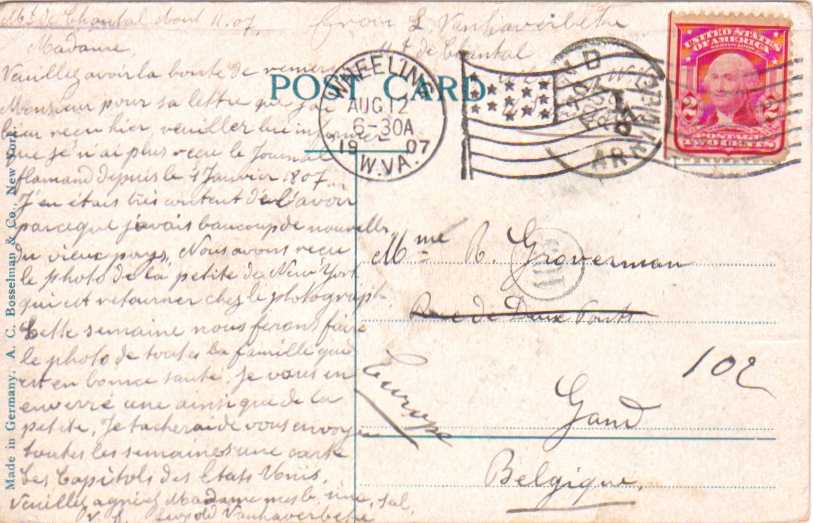 Mt de Chantal 11. 07.
From L. Vanhaverbeke
Mt de Chantal
Madame,
Veuillez avoir la bonté de remercier
Monsieur pour sa lettre que j'ai
bien reçu hier, veuiller lui
que je n'ai plus reçu le Journal
flamand depuis le 1 Janvier 1807.
J'en étais très content de l'avoir
parceque j'avais beaucoup de nouvelle
du vieux pays. Nous avons reçu
le photo de la petite de New York
qui est retourner chez le photograph
Cette semaine nous ferons faire
le photo de toutes la famille qui
est en bonne santé. Je vous en
enverré une ainsi que de la
petite. Je tacherai de vous envoyer
toutes les semaines une carte
des Capitols des Etats Unis.
Veuillez agréez Madame mes sal.
Leopold Vanhaverbeke
POST CARD
WHEELING
AUG 12
6-30A
1907
W.VA.
UNITED STATES
OF AMERICA
2 2
POSTAGE
TWO CENTS
Mme R. Groverman
Rue de Deux Ponts
102
Europe
Gand
Belgique.
Made in Germany. A. C. Bosselman & Co. New York